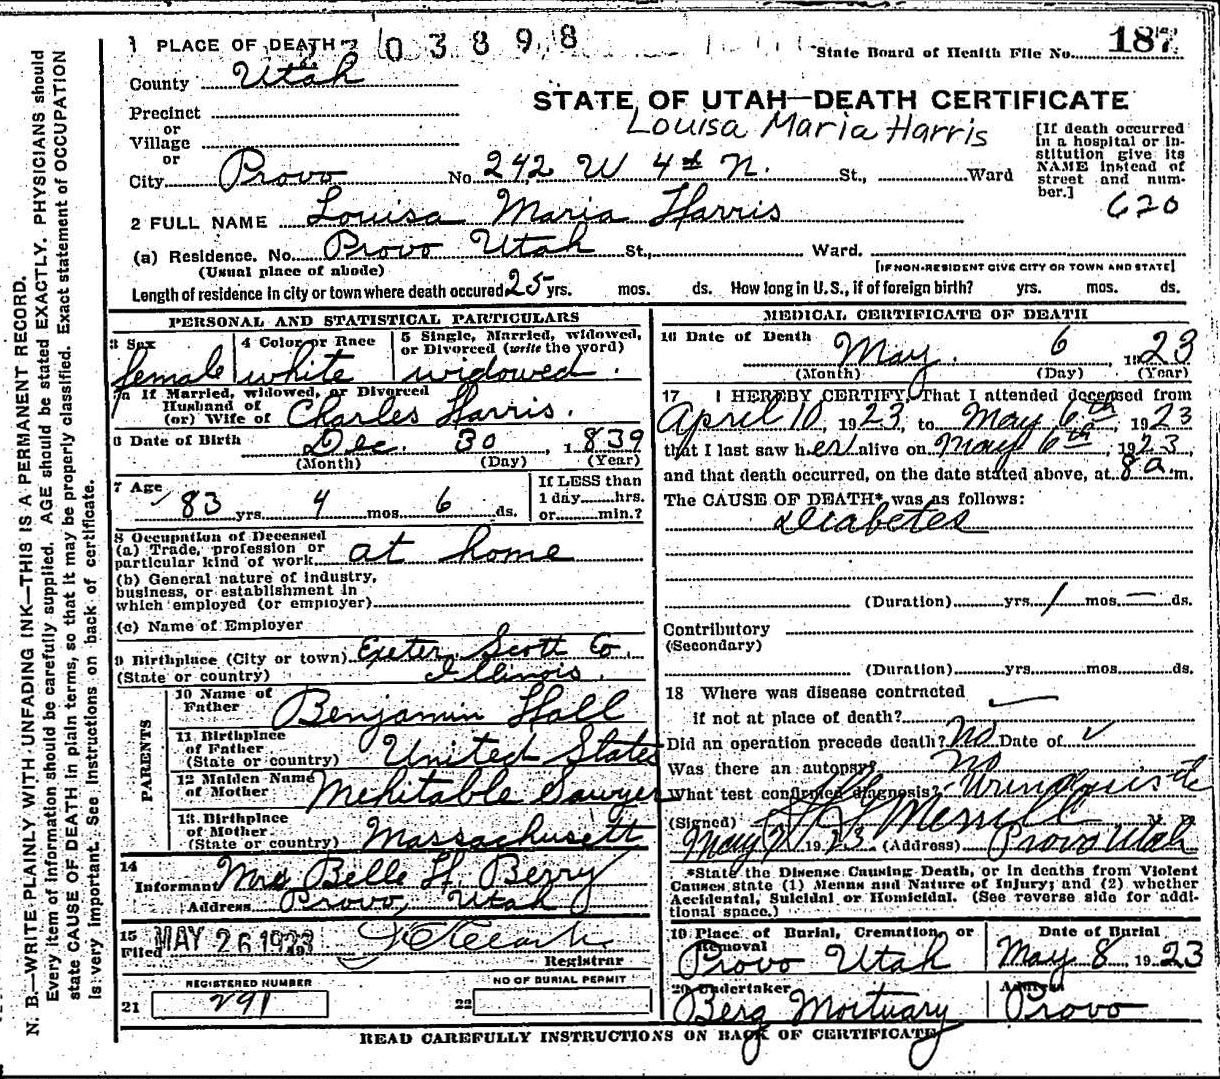 1 PLACE OF DEATH 03898 State Board of Health File No. 187
County Utah
STATE OF UTAH—DEATH CERTIFICATE
Precinct
Louisa Maria Harris
or
Village
or
City Provo No. 242 W 4th N. St., Ward
[If death occurred in a hospital or institution give its NAME instead of street and number.]
620
2 FULL NAME Louisa Maria Harris
(a) Residence. No. Provo Utah St., Ward.
(Usual place of abode) [IF NON-RESIDENT GIVE CITY OR TOWN AND STATE]
Length of residence in city or town where death occured 25 yrs. mos. ds. How long in U.S., if of foreign birth? yrs. mos. ds.
PERSONAL AND STATISTICAL PARTICULARS
3 Sex female
4 Color or Race white
5 Single, Married, widowed, or Divorced (write the word) widowed.
If Married, widowed, or Divorced
Husband of
(or) Wife of Charles Harris.
6 Date of Birth Dec. 30, 1839
(Month) (Day) (Year)
7 Age 83 yrs. 4 mos. 6 ds.
If LESS than
1 day hrs.
or min.?
8 Occupation of Deceased
(a) Trade, profession or
particular kind of work at home
(b) General nature of industry,
business, or establishment in
which employed (or employer)
(c) Name of Employer
9 Birthplace (City or town) Exeter, Scott Co.
(State or country) Illinois.
PARENTS
10 Name of
Father Benjamin Hall
11 Birthplace
of Father
(State or country) United States
12 Maiden Name
of Mother Mehitable Sawyer
13 Birthplace
of Mother
(State or country) Massachusett
14
Informant Mrs Belle H. Berry
Address Provo, Utah
15
Filed MAY 26 1923
Registrar
REGISTERED NUMBER
21 291
NO OF BURIAL PERMIT
22
MEDICAL CERTIFICATE OF DEATH
16 Date of Death May. 6 1923
(Month) (Day) (Year)
17 I HEREBY CERTIFY, That I attended deceased from
April 10, 1923, to May 6th, 1923
that I last saw her alive on May 6th, 1923,
and that death occurred, on the date stated above, at 8 a. m.
The CAUSE OF DEATH* was as follows:
Diabetes
(Duration) yrs. 1 mos. — ds.
Contributory
(Secondary)
(Duration) yrs. mos. ds.
18 Where was disease contracted
if not at place of death?
Did an operation precede death? No Date of
Was there an autopsy? No
What test confirmed diagnosis?
(Signed) Merrill M. D.
May 1923 (Address) Provo Utah
*State the Disease Causing Death, or in deaths from Violent
Causes state (1) Means and Nature of Injury; and (2) whether
Accidental, Suicidal or Homicidal. (See reverse side for addi-
tional space.)
19 Place of Burial, Cremation, or Removal
Provo Utah
Date of Burial
May 8, 1923
20 Undertaker
Berg Mortuary
Address
Provo
READ CAREFULLY INSTRUCTIONS ON BACK OF CERTIFICATE
N. B.—WRITE PLAINLY WITH UNFADING INK—THIS IS A PERMANENT RECORD.
Every item of information should be carefully supplied. AGE should be stated EXACTLY. PHYSICIANS should
state CAUSE OF DEATH in plain terms, so that it may be properly classified. Exact statement of OCCUPATION
is very important. See instructions on back of certificate.